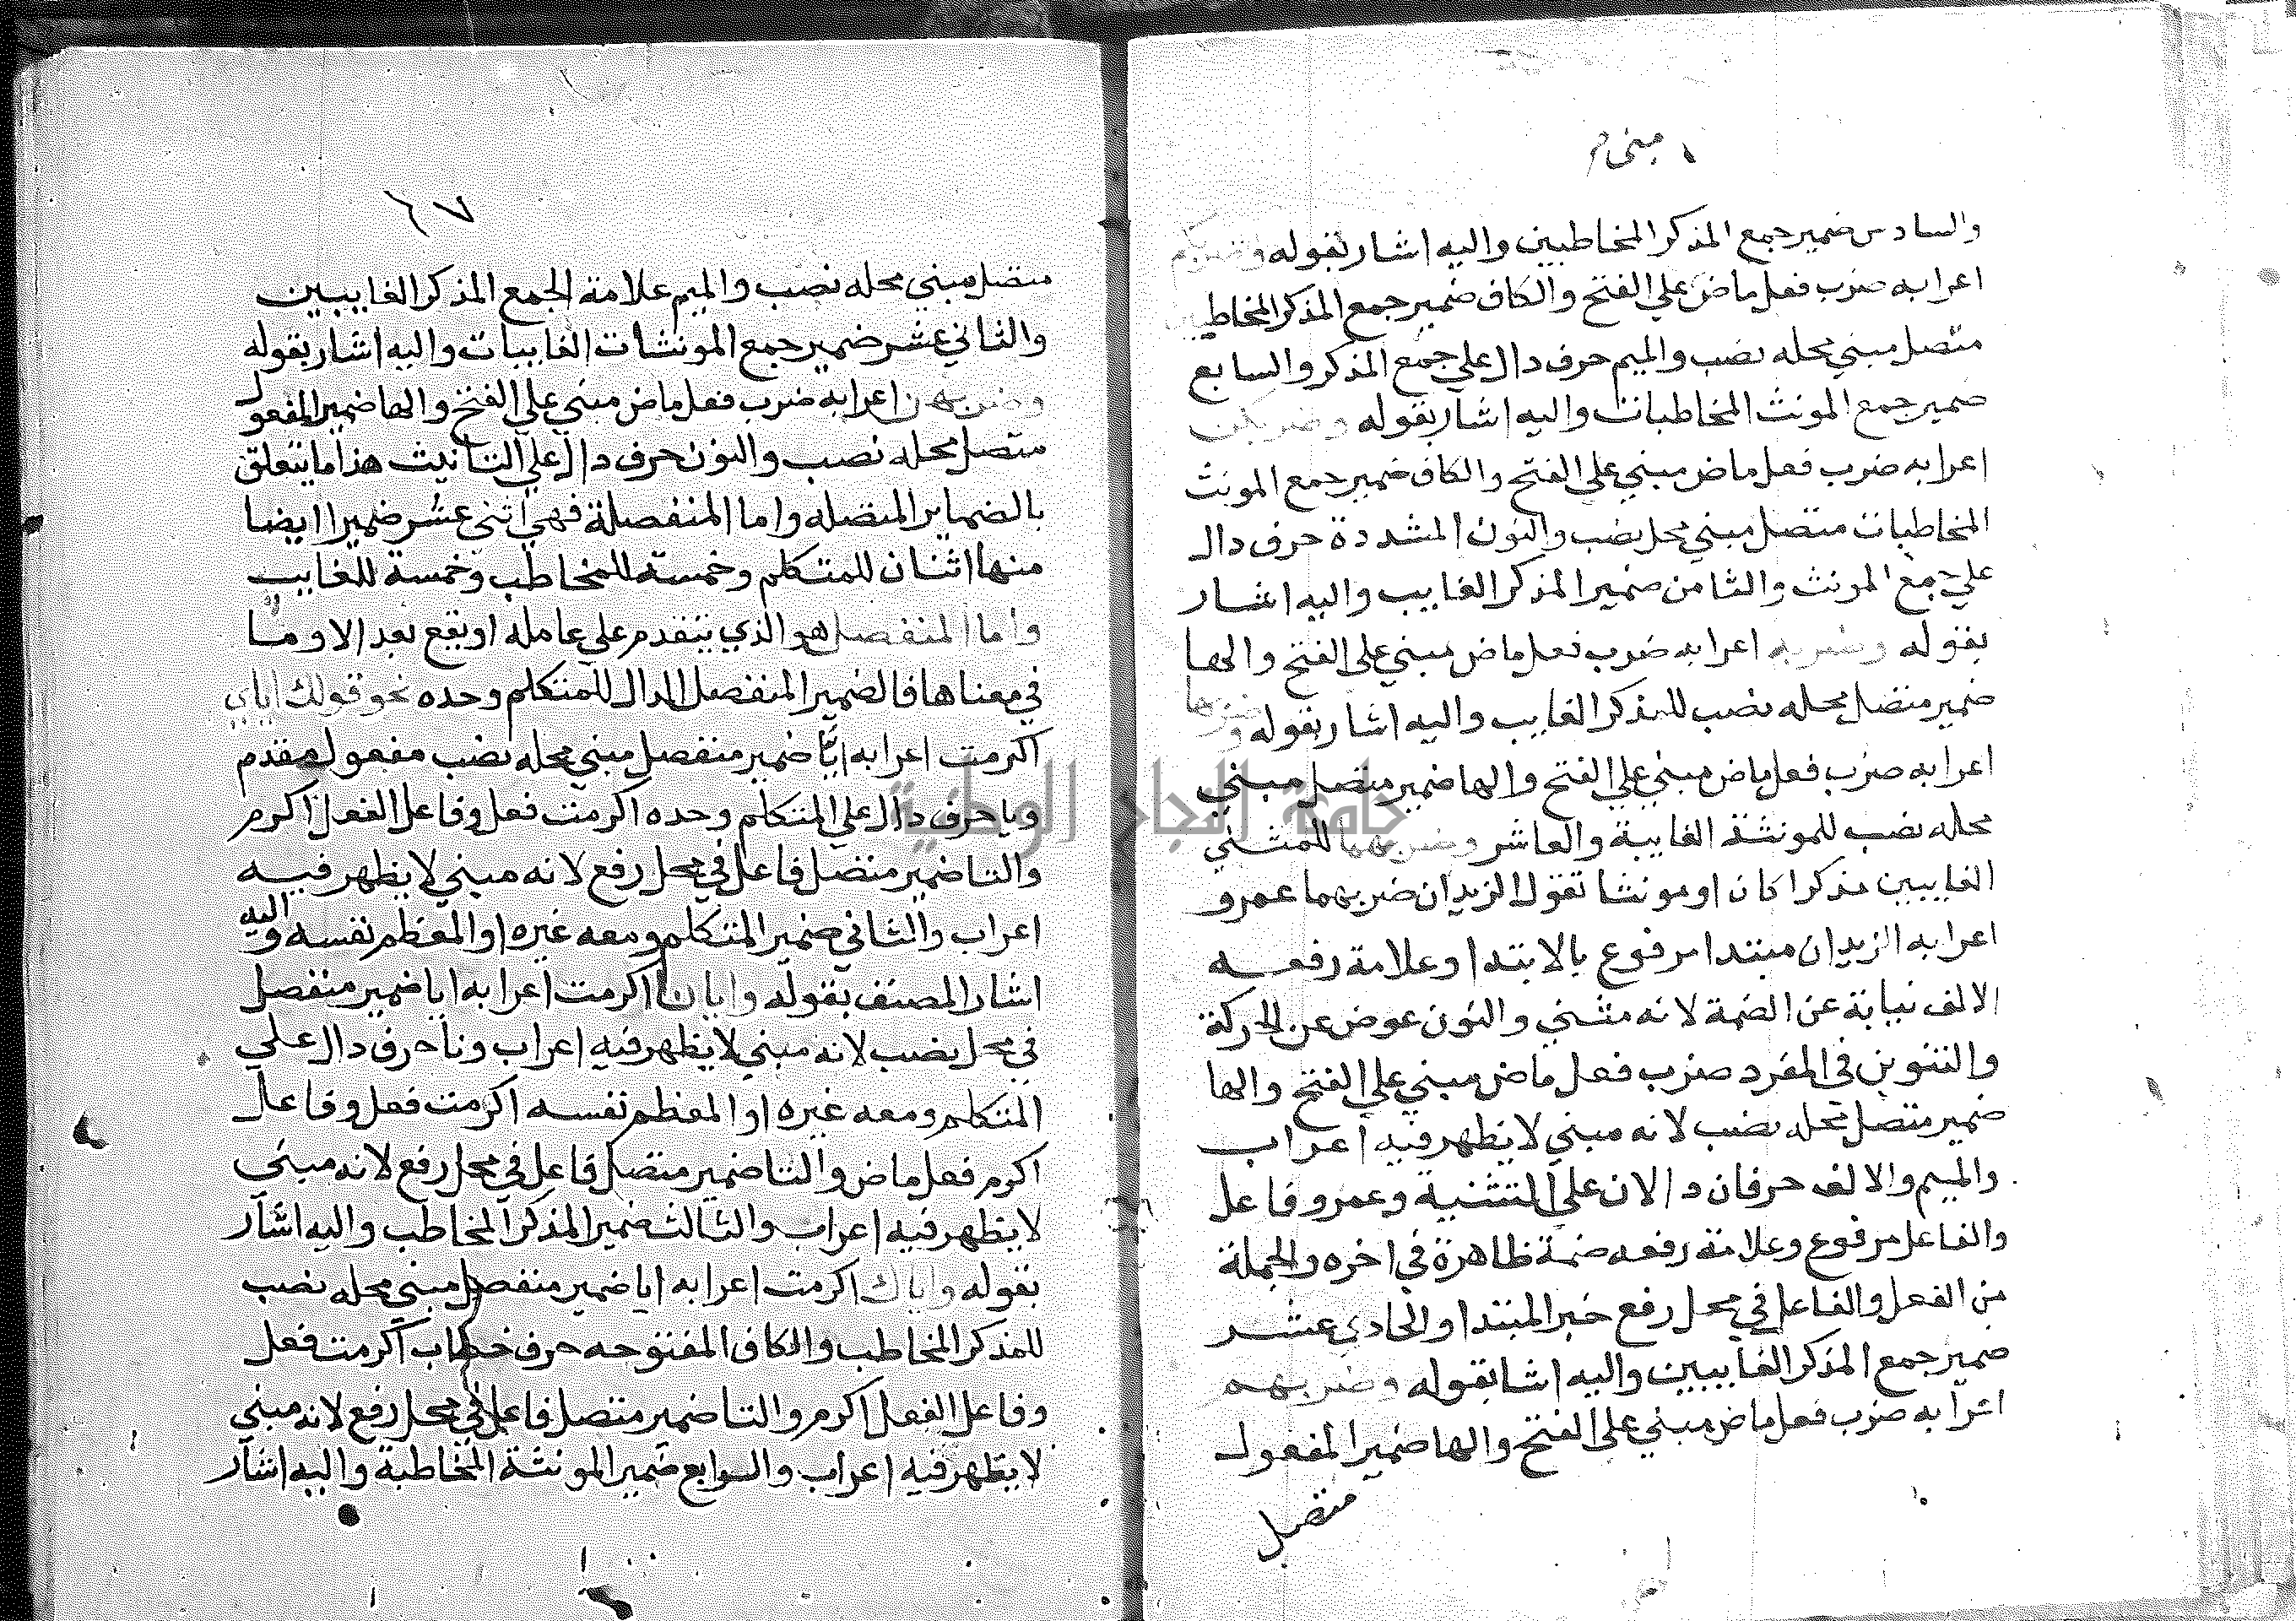 مبني م
والسادس ضمير جمع المذكر المخاطبين واليه اشار بقوله وضربكم
اعرابه ضرب فعل ماض علي الفتح والكاف ضمير جمع المذكر المخاطبين
متصل مبني محله نصب والميم حرف دال علي جمع المذكر والسابع
ضمير جمع المونث المخاطبات واليه اشار بقوله وضربكن
اعرابه ضرب فعل ماض مبني علي الفتح والكاف ضمير جمع المونث
المخاطبات متصل مبني محل نصب والنون المشددة حرف دال
علي جمع المونث والثامن ضمير المذكر الغايب واليه اشار
بقوله وضربه اعرابه ضرب فعل ماض مبني علي الفتح والها
ضمير متصل محله نصب للمذكر الغايب واليه اشار بقوله وضربها
اعرابه ضرب فعل ماض مبني علي الفتح والها ضمير متصل مبني
محله نصب للمونثة الغايبة والعاشر وضربهما للمثني
الغايبين مذكرا كان او مونثا تقول الزيدان ضربهما عمرو
اعرابه الزيدان مبتدا مرفوع بالابتدا وعلامة رفعه
الالف نيابة عن الضمة لانه مثني والنون عوض عن الحركة
والتنوين في المفرد ضرب فعل ماض مبني علي الفتح والها
ضمير متصل محله نصب لانه مبني لا يظهر فيه اعراب
والميم والالف حرفان دالان علي التثنية وعمرو فاعل
والفاعل مرفوع وعلامة رفعه ضمة ظاهرة في اخره والجملة
من الفعل والفاعل في محل رفع خبر المبتدا والحادي عشر
ضمير جمع المذكر الغايبين واليه اشا بقوله وضربهم
اعرابه ضرب فعل ماض مبني علي الفتح والها ضمير المفعول
متصل
٦٧
متصل مبني محله نصب والميم علامة الجمع المذكر الغايبين
والثاني عشر ضمير جمع المونثات الغايبات واليه اشار بقوله
وضربهن اعرابه ضرب فعل ماض مبني علي الفتح والها ضمير المفعول
متصل محله نصب والنون حرف دال علي التانيث هذا ما يتعلق
بالضماير المتصله واما المنفصلة فهي اثني عشر ضميرا ايضا
منها اثنان للمتكلم وخمسة للمخاطب وخمسة للغايب
واما المنفصل هو الذي يتقدم علي عامله او يقع بعد الا وما
في معناها فالضمير المنفصل الدال للمتكلم وحده نحو قولك اياي
اكرمت اعرابه ايا ضمير منفصل مبني محله نصب مفعول مقدم
ويا حرف دال علي المتكلم وحده اكرمت فعل وفاعل الفعل اكرم
والتا ضمير متصل فاعل في محل رفع لانه مبني لا يظهر فيه
اعراب والثاني ضمير المتكلم ومعه غيره او المعظم نفسه واليه
اشار المصنف بقوله وايانا اكرمت اعرابه ايا ضمير منفصل
في محل نصب لانه مبني لا يظهر فيه اعراب ونا حرف دال علي
المتكلم ومعه غيره او المعظم نفسه اكرمت فعل وفاعل
اكرم فعل ماض والتا ضمير متصل فاعل في محل رفع لانه مبني
لا يظهر فيه اعراب والثالث ضمير المذكر المخاطب واليه اشار
بقوله واياك اكرمت اعرابه ايا ضمير منفصل مبني محله نصب
للمذكر المخاطب والكاف المفتوحه حرف خطاب اكرمت فعل
وفاعل الفعل اكرم والتا ضمير متصل فاعل في محل رفع لانه مبني
لا يظهر فيه اعراب والرابع ضمير المونثة المخاطبة واليه اشار
جامعة النجاح الوطنية